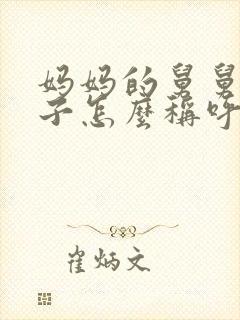 妈妈的舅舅
子怎麼稱呼
崔炳文